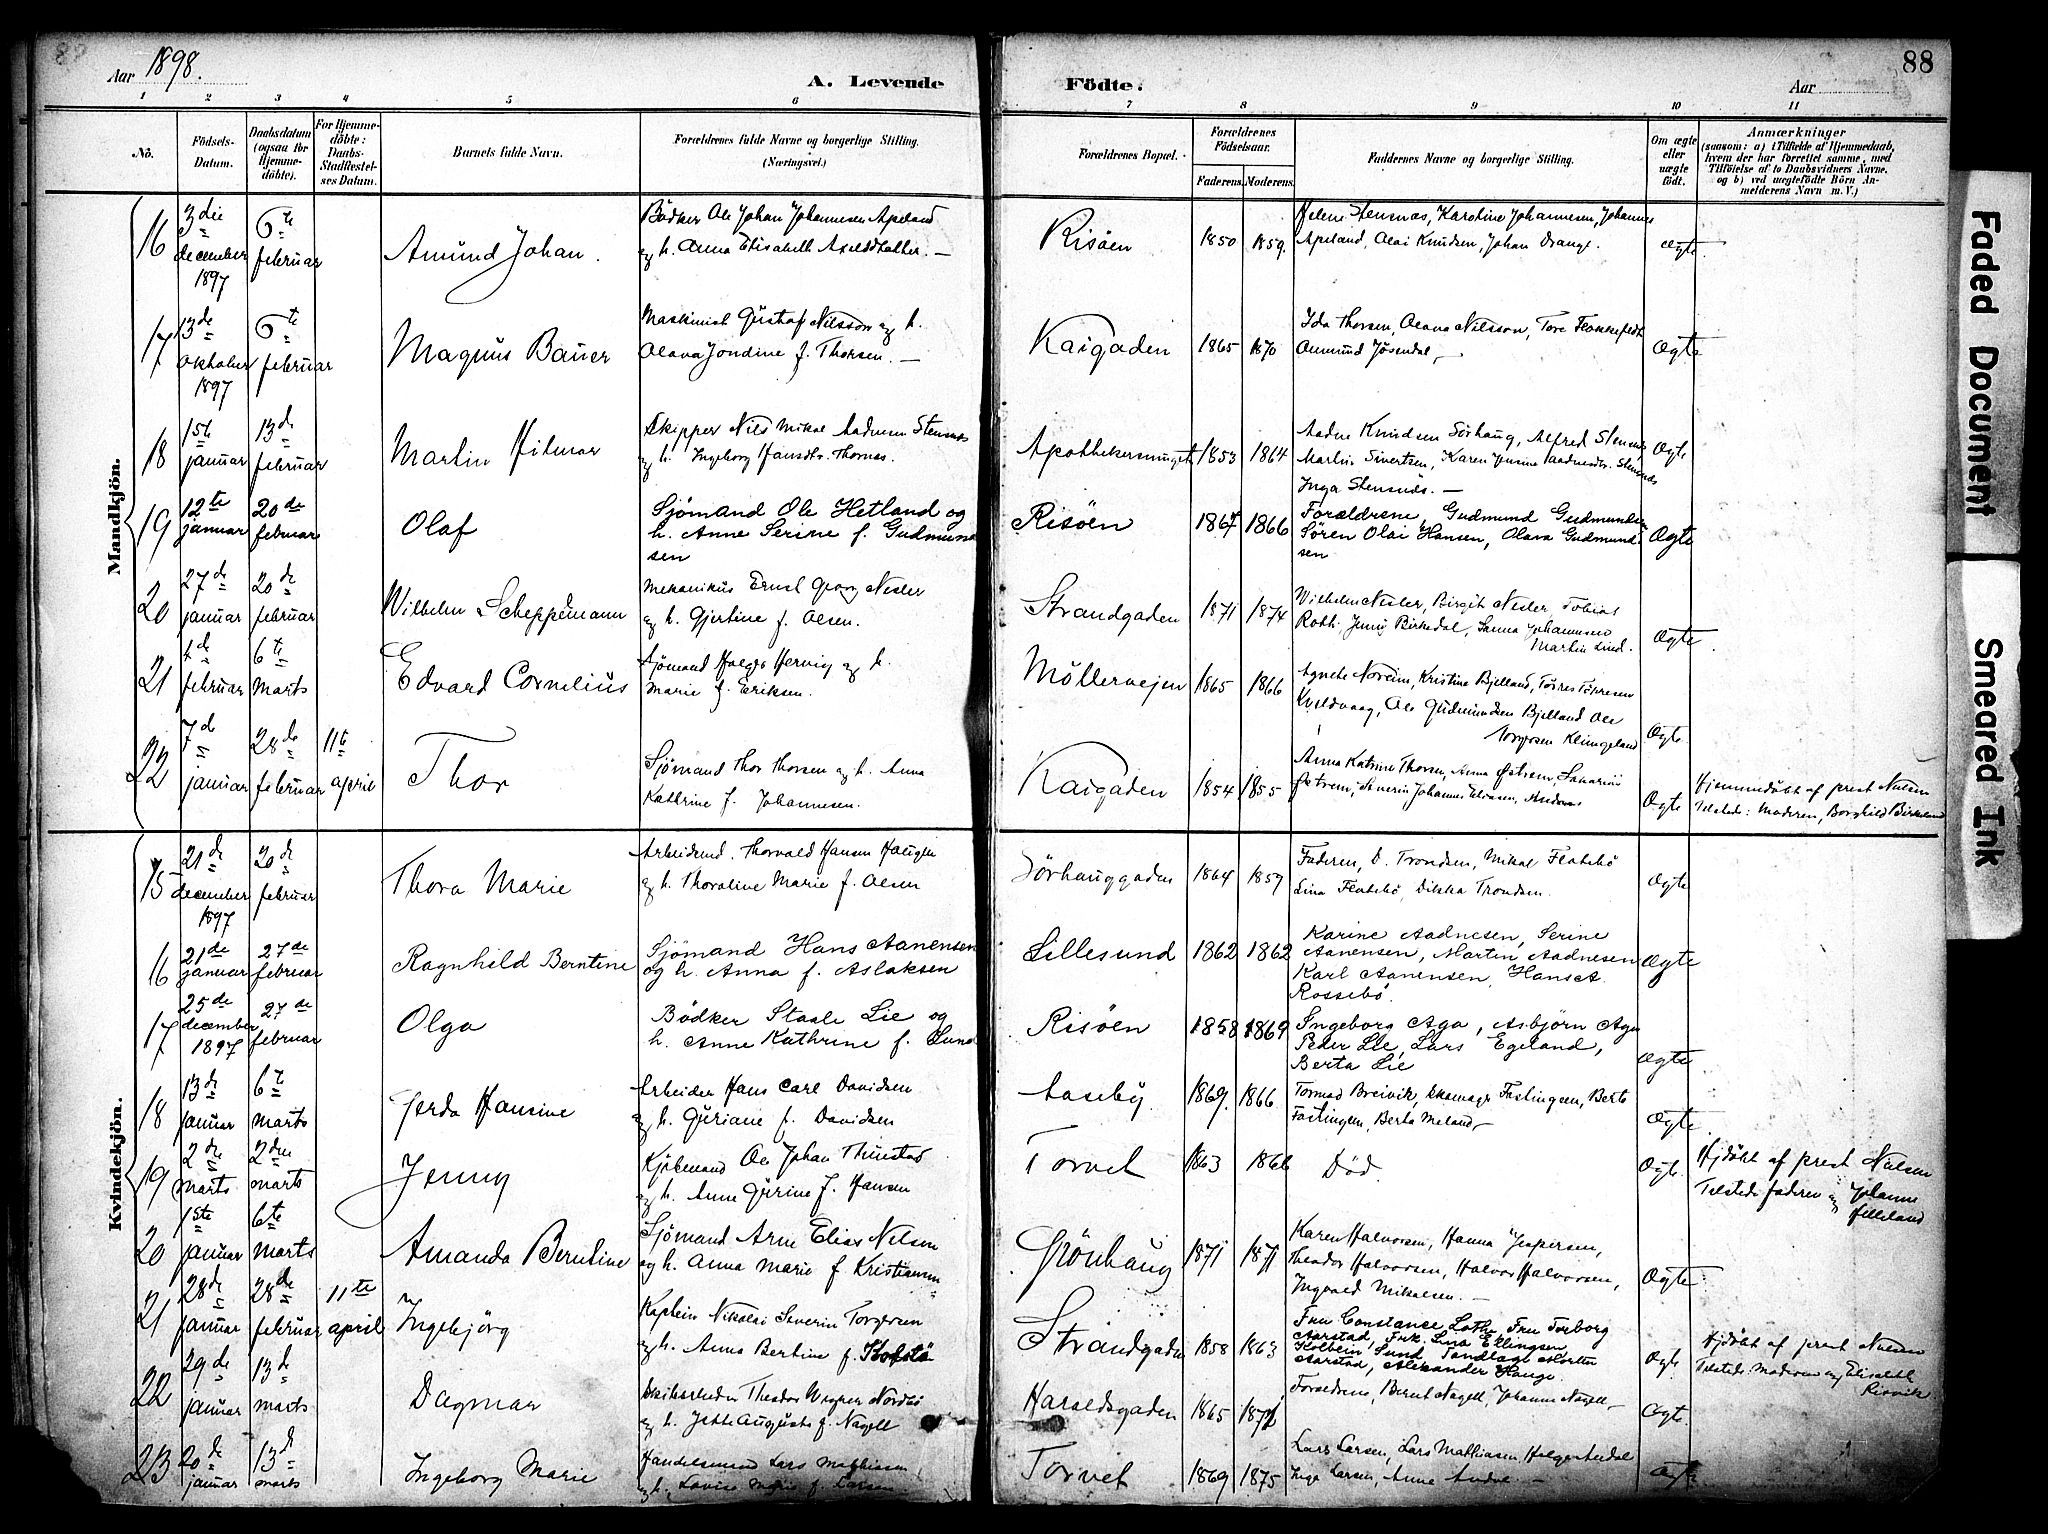 88
Aar 1898.
A. Levende
Födte.
Aar
1 2 3 4 5 6 7 8 9 10 11
No.
Födsels-Datum.
Daabsdatum (ogsaa for Hjemme-döbte).
For Hjemme-döbte: Daabs-Stadfæstel-ses Datum.
Barnets fulde Navn.
Forældrenes fulde Navne og borgerlige Stilling.
(Næringsvei.)
Forældrenes Bopæl.
Forældrenes Födselsaar.
Faderens. Moderens.
Faddernes Navne og borgerlige Stilling.
Om ægte eller uægte födt.
Anmærkninger
(saasom: a) i Tilfælde af Hjemmedaab, hvem der har forrettet samme, med Tilföielse af to Daabsvidners Navne, og b) ved uægtefödte Börn An-melderens Navn m. V.)
Mandkjön.
16 3die december 1897 6te februar Amund Johan.
Bödker Ole Johan Johannesen Apeland
og h. Anna Elisabeth
Risöen 1850 1859.
Helene Stensnæs, Karoline Johannesen, Johannes
Apeland, Olai Knudsen, Johan Drange.
ægte
17 13de oktober 1897 6te februar Magnus Bauer
Maskinist Gustaf Nilsson og h.
Olava Jondine f. Thorsen.
Kaigaden 1865 1870
Ida Thorsen, Olava Nilsson, Tore
Anmund Jösendal,
Ægte
18 1ste januar 13de februar Martin Hilmar
Skipper Nils Mikal Aadnesen Stensnæs
og h. Ingeborg Hansdtr. Thornæs.
1853 1864
Aadne Knudsen Sörhaug, Alfred Stensnæs,
Martin Sivertsen, Karen
Inga Stensnæs.
Ægte
19 12te januar 20de februar Olaf
Sjömand Ole Hetland og
h. Anne Serine f. Gudmund
sen
Risöen 1867 1866
Forældrene, Gudmund Gudmundsen
Sören Olai Hansen, Olava Gudmund-
sen
Ægte
20 27de januar 20de februar Wilhelm Scheppemann
Mekanikus Ernst Georg Nesler
og h. Gjertine f. Olsen.
Strandgaden 1871 1874
Wilhelm Nesler, Birgit Nesler, Tobias
Roth, Jenny Birkedal, Sanna Johannesen
Martin Lind.
Ægte
21 februar 6te marts Edvard Cornelius
Sjömand Holger Hervig og h.
Marie f. Eriksen.
Möllervejen 1865 1866
Agnete Noreim, Kristine Bjelland, Törres Törresen
Kveldvaag, Ole Gudmundsen Bjelland Ole
Torgersen
Ægte
22 7de januar 28de februar 11te april Thor
Sjömand Thor Thorsen og h. Anna
Kathrine f. Johannesen.
Kaigaden 1854 1855
Anna Katrine Thorsen, Anna Östrem, Sakarias
Östrem, Severin Johannes Eliasen,
Ægte
Hjemmedöbt af prest Nielsen
Tilstede: Moderen, Borghild Birkeland
Kvindekjön.
15 21de december 1897 20de februar Thora Marie
Arbeidsmd. Thorvald Hansen Haugen
og h. Thoraline Marie f. Olsen
Sörhauggaden 1864 1859
Faderen, D. Trondsen, Mikal Flatebö
Lina Flatebö, Trondsen.
Ægte
16 21de januar 27de februar Ragnhild Berntine
Sjömand Hans Aanensen
og h. Anna f. Aslaksen
Lillesund 1862 1862
Karine Aadnesen, Serine
Aanensen, Martin Aadnesen
Karl Aanensen, Hans A.
Rossebö.
Ægte
17 25de december 1897 27de februar Olga
Bödker Staale Lie og
h. Anne Kathrine f. Lund
Risöen 1858 1869
Ingeborg Aga, Asbjörn Aga
Peder Lie, Lars Egeland,
Berta Lie
Ægte
18 13de januar 6te marts Gerda Hansine
Arbeider Hans Carl Davidsen
og h. Guriane f. Davidsen
Aaseby 1869. 1866
Tormod Breivik, Fastingsen, Berte
Fastingen, Berta Meland,
Ægte
19 2den marts 2den marts Jenny
Kjöbmand Ole Johan Thuestad
og h. Anne Gurine f. Hansen
Torvet 1863 1866
Död.
Ægte
Hjdöbt af prest Nielsen
Tilstede faderen og Johanne
Helleland
20 1ste januar 6te marts Amanda Berntine
Sjömand Arne Elias Nilsen
og h. Anna Marie f. Kristiansen
Grönhaug 1871 1871
Karen Halvorsen, Hanna Jespersen,
Theodor Halvorsen, Halvor Halvorsen,
Ingvald Mikalsen.
Ægte
21 28de januar 28de februar 11te april Ingebjörg
Kaptein Nikolai Severin Torgersen
og h. Anna Bertine f.
Strandgaden 1858 1863
Fru Constance Lothe, Fru Torborg
Aarstad, Frk. Lina Ellingsen
Kolbein Lund, Tandlæge Morten
Aarstad, Alexander Hauge.
Ægte
Hjdöbt af prest Nielsen
Tilstede: Moderen og Elisabeth
Risvik.
22 29de januar 13de marts Dagmar
Theodor Nordbö
og h. Jette Augusta f. Nagell
Haraldsgaden 1865
Forældrene, Bernt Nagell, Johanne Nagell,
Ægte
23 20de januar 13de marts Ingeborg Marie
Handelsmand Lars Mathiasen
og h. Lovise Marie f. Larsen
Torvet 1869 1875
Lars Larsen, Lars Mathiasen, Helge Aardal
Inga Larsen, Anne Aardal.
Ægte
Faded Document
Smeared Ink